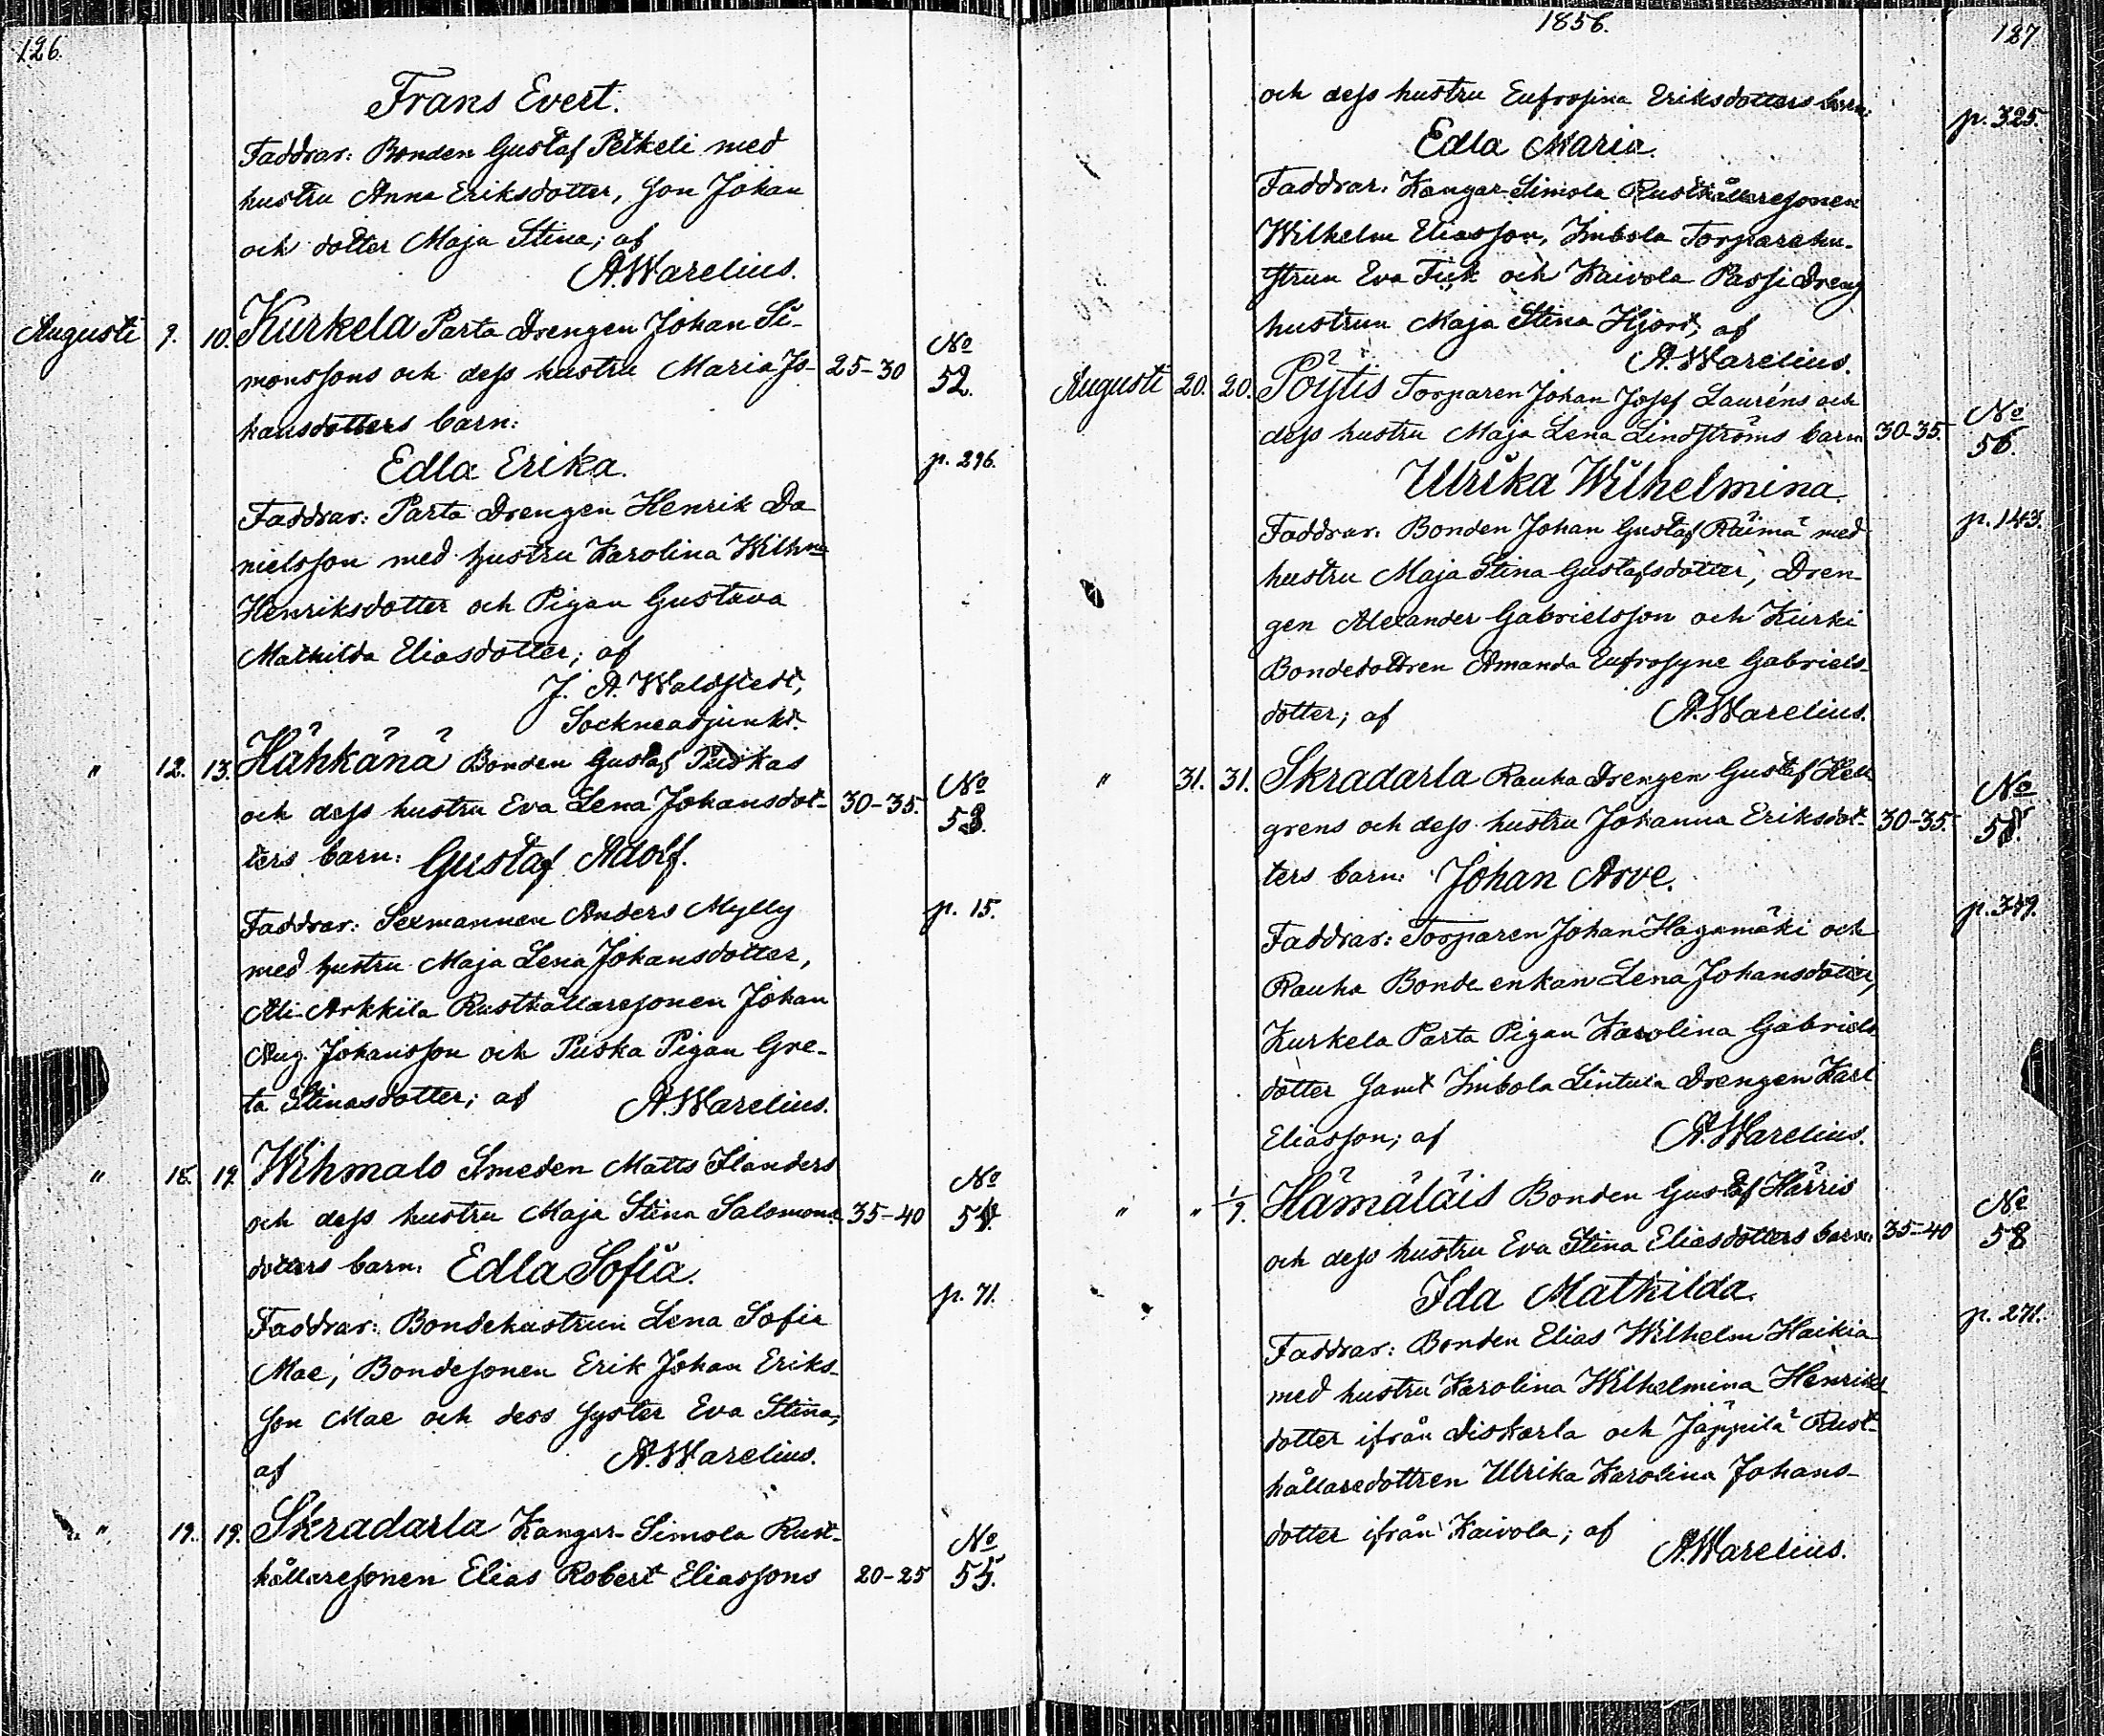 126.
Frans Evert.
Faddrar: Bonden Gustaf Peltkeli med
hustru Anna Eriksdotter, son Johan
och dotter Maja Stina; af
A. Warelius.
Augusti 9. 10. Kurkela Parta Drengen Johan Si-
monssons och dess hustru Maria Jo- 25-30 No 52.
hansdotters barn:
Edla Erika. p. 296.
Faddrar: Parta Drengen Henrik Da
nielsson med hustru Karolina Wilhna
Henriksdotter och Pigan Gustava
Mathilda Eliasdotter; af
J. A. Waldstedt,
Sockneadjunkt.
" 12. 13. Hähkänä Bonden Gustaf Pudkas
och dess hustru Eva Lena Johansdot- 30-35. No 53.
ters barn: Gustaf Adolf.
p. 15.
Faddrar: Sexmannen Anders Mylly
med hustru Maja Lena Johansdotter,
Ali-Arkkila Rusthållaresonen Johan
Aug. Johansson och Puska Pigan Gre-
ta Stinasdotter; af A. Warelius.
" 18. 19. Wihmalo Smeden Matts Flanders
och dess hustru Maja Stina Salomons- 35-40 No 54.
dotters barn: Edla Sofia.
p. 71.
Faddrar: Bondehustrun Lena Sofia
Mae, Bondesonen Erik Johan Eriks-
son Mae och dess syster Eva Stina;
af A. Warelius.
" 19. 19. Skradarla Kangar-Simola Rust-
hållaresonen Elias Robert Eliassons 20-25 No 55.
1856.
127
och dess hustru Eufrosina Eriksdotters barn:
p. 325.
Edla Maria.
Faddrar: Kangar-Simola Rusthållaresonen
Wilhelm Eliasson, Imbola Torparehu-
strun Eva Fick och Kaivola Passi Dreng
hustrun Maja Stina Hjort; af
A. Warelius.
Augusti 20. 20. Pöytis Torparen Johan Josef Lauréns och
dess hustru Maja Lena Lindströms barn 30-35. No 56.
Ulrika Wilhelmina.
p. 143.
Faddrar: Bonden Johan Gustaf Räimä med
hustru Maja Stina Gustafsdotter, Dren-
gen Alexander Gabrielsson och Kurki
Bondedottren Amanda Eufrosyne Gabriels-
dotter; af A. Warelius.
" 31. 31. Skradarla Rauha Drengen Gustaf Hell
grens och dess hustru Johanna Eriksdot- 30-35. No 57.
ters barn: Johan Arve.
p. 349.
Faddrar: Torparen Johan Hagamäki och
Rauha Bonde enkan Lena Johansdotter,
Kurkela Parta Pigan Karolina Gabriels
dotter samt Imbola Lintula Drengen Karl
Eliasson; af A. Warelius.
" " 1/9. Hämäläis Bonden Gustaf Härris
och dess hustru Eva Stina Eliasdotters barn: 35-40 No 58
Ida Mathilda.
p. 271.
Faddrar: Bonden Elias Wilhelm Haikia
med hustru Karolina Wilhelmina Henriks
dotter ifrån Diskarla och Jäppilä Rust-
hållaredottren Ulrika Karolina Johans-
dotter ifrån Kaivola; af
A. Warelius.